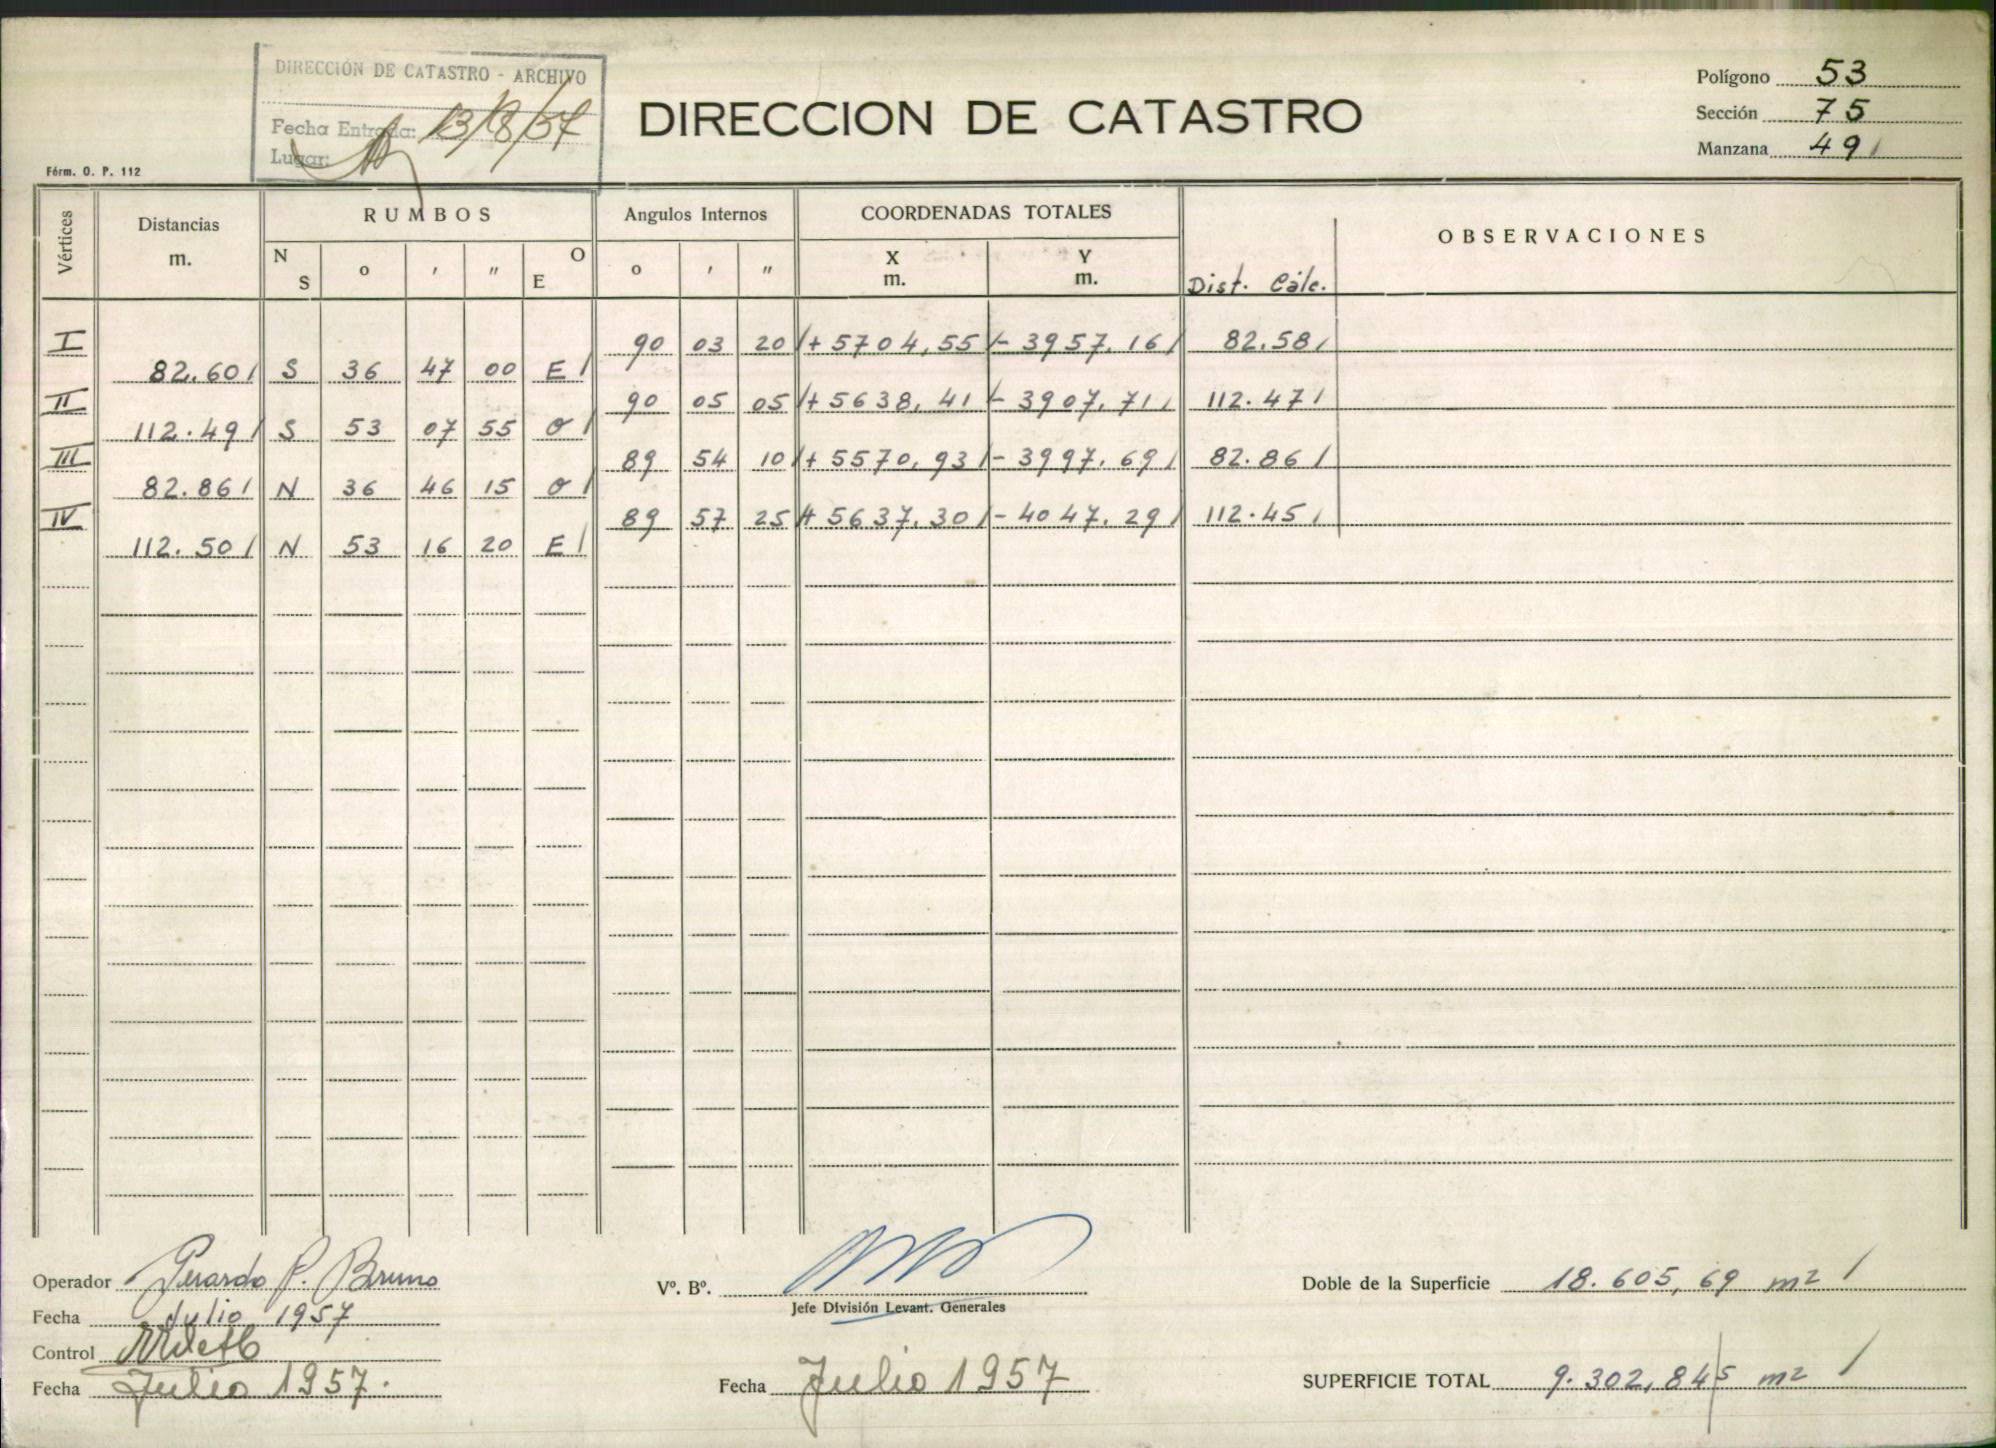 DIRECCIÓN DE CATASTRO - ARCHIVO
Fecha Entrada: 13/8/57
Lugar:
DIRECCION DE CATASTRO
Polígono 53
Sección 75
Manzana 49
Férm. O. P. 112
Vértices
Distancias m.
RUMBOS
N S o ′ ″ O E
Angulos Internos
o ′ ″
COORDENADAS TOTALES
X m. Y m.
Dist. Cálc.
OBSERVACIONES
I 90 03 20 + 5704,55 - 3957,16 82.58
82.60 S 36 47 00 E
II 90 05 05 + 5638,41 - 3907,71 112.47
112.49 S 53 07 55 O
III 89 54 10 + 5570,93 - 3997,69 82.86
82.86 N 36 46 15 O
IV 89 57 25 + 5637,30 - 4047,29 112.45
112.50 N 53 16 20 E
Operador Gerardo P. Bruno
Fecha Julio 1957
Control
Fecha Julio 1957.
Vº. Bº.
Jefe División Levant. Generales
Fecha Julio 1957
Doble de la Superficie 18.605,69 m2
SUPERFICIE TOTAL 9.302,845 m2